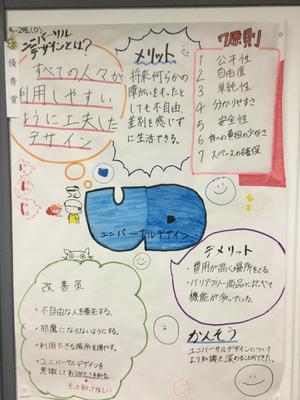 4-2班(D)
優秀賞
ユニバーサル
デザインとは?
すべての人々が
利用しやすい
ように工夫した
デザイン
メリット
将来何らかの
障がいをもったと
しても不自由、
差別を感じず
に生活できる。
7原則
1 公平性
2 自由度
3 単純性
4 分かりやすさ
5 安全性
6 体への負担の少なさ
7 スペースの確保
ユニバーサルデザイン
デメリット
・費用が高く場所をとる
・バリアフリー商品にくらべて
機能が劣っている。
改善策
・不自由な人を優先する。
・邪魔にならないようにする。
・利用できる場所を増やす。
・ユニバーサルデザインを
意識してありがたさを知る。
もっと知ってほしい
かんそう
ユニバーサルデザインについて
より知識を深めることができた。